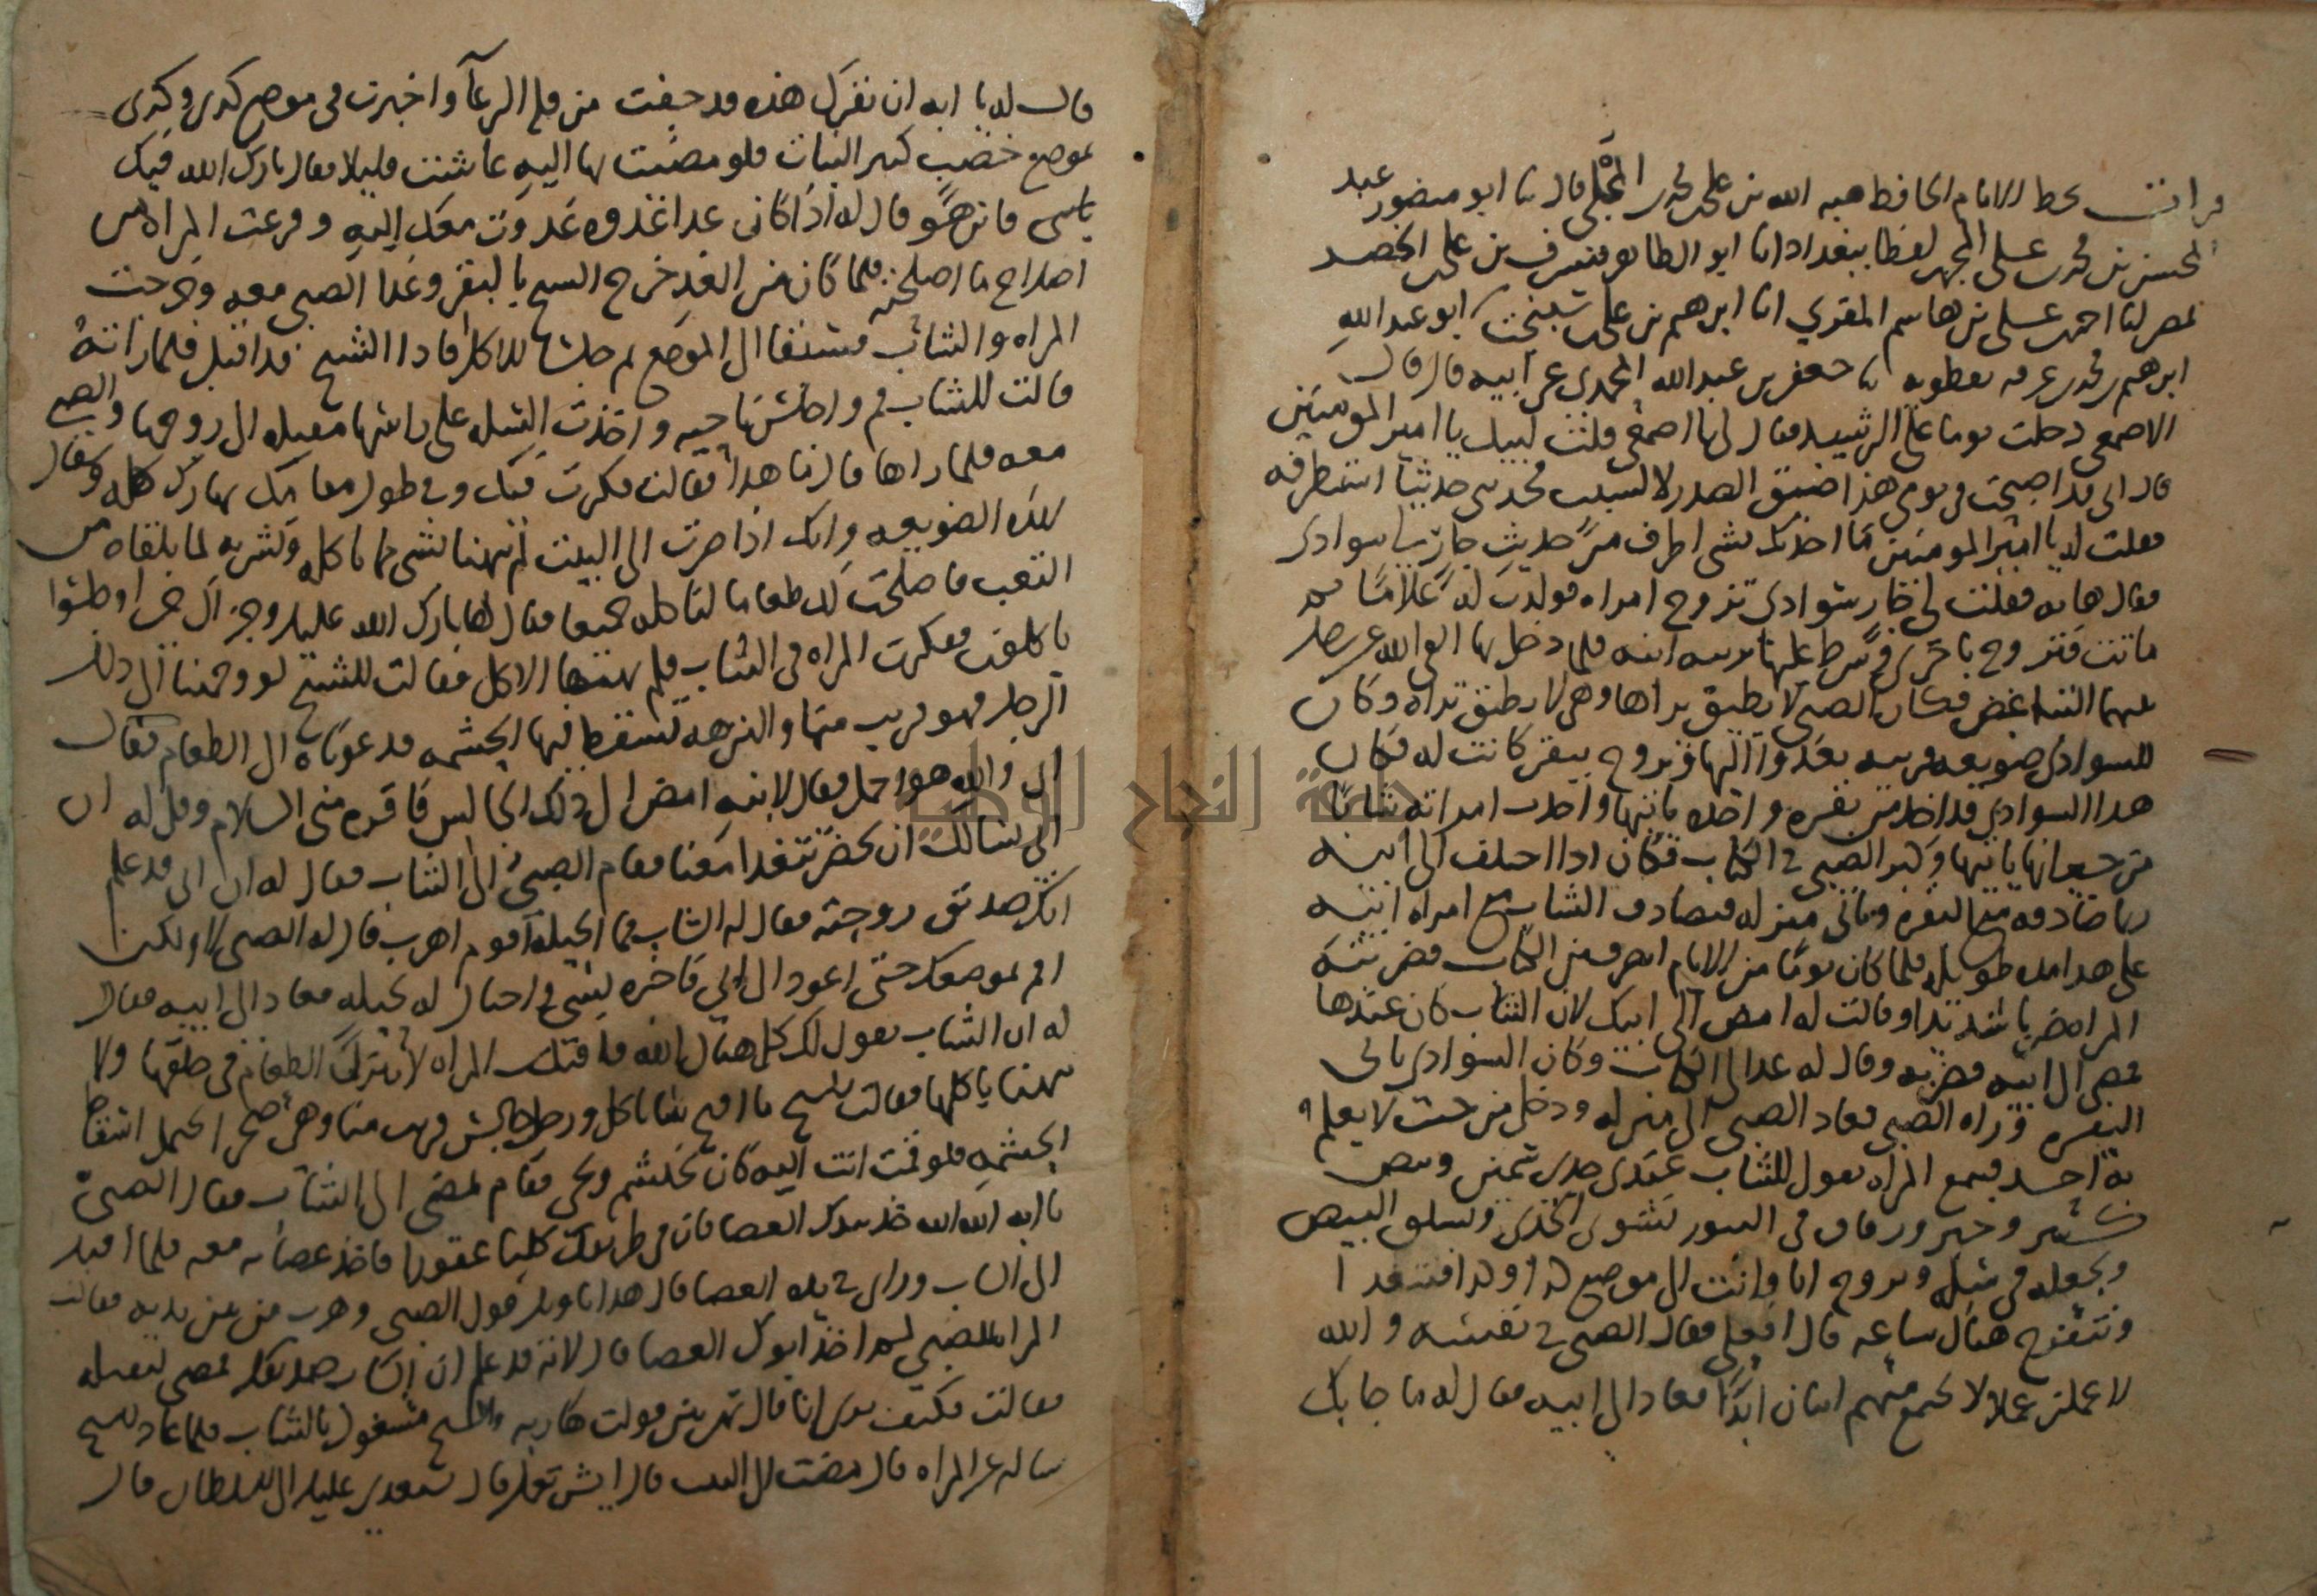 قرات بخط الامام الحافظ هبه الله بن علي بن محمد المجلي قال انا ابو منصور عبد
المحسن بن محمد بن علي لفظا ببغداد انا ابو الطاهر مشرف بن علي الخضر
بمصر انا احمد بن علي بن هاشم المقري انا ابرهيم بن علي بن سيبخت ابو عبد الله
ابرهيم بن محمد بن عرفه نفطويه نا جعفر بن عبد الله المحمدي عن ابيه قال قال
الاصمعي دخلت يوما على الرشيد فقال لي يا اصمعي قلت لبيك يا امير المومنين
قال اني قد اصبحت في يومي هذا ضيق الصدر لا لسبب فحدثني حديثا استطرفه
فقلت له يا امير المومنين ما احدثك بشي اطرف من حديث جار لنا سوادي
فقال هاته فقلت لي جار سوادي تزوج امراه فولدت له غلاما ثم
ماتت فتزوج باخرى وشرط عليها تربيه ابنه فلما دخل بها القى الله عز وجل
بينهما التباغض فكان الصبي لا يطيق يراها وهي لا تطيق تراه وكان
للسوادي ضويعه قريبه يغدوا اليها ويروح ببقر كانت له فكان
هذا السوادي قد اخذ من بقره واحده ياتيها واخذت امراته شابا
من جيرانها ياتيها وكبر الصبي في الكتاب فكان اذا اختلف الى ابيه
ربما صادفه مع البقره وياتي منزله فيصادف الشاب مع امراه ابيه
على هذا مده طويله فلما كان يوما من الايام انصرف من الكتاب فضربته
المراه ضربا شديدا وقالت له امض الى ابيك لان الشاب كان عندها
فمضى الى ابيه فضربه وقال له عد الى الكتاب وكان السوادي ياتي
البقره وراه الصبي فعاد الصبي الى منزله ودخل من حيث لا يعلم
به احد فسمع المراه تقول للشاب عندي جدي سمين وبيض
كثير وخبز ورقاق في التنور نشوي الجدي ونسلق البيض
ونجعله في سله ونروح انا وانت الى موضع كذا وكذا فنتغدا
ونتفرج هناك ساعه قال افعلي فقال الصبي في نفسه والله
لاعملن عملا لا يجتمع منهم اثنان ابدا فعاد الى ابيه فقال له ما جا بك
قال له يا ابه ان بقرك هذه قد جفت من قله الرعا واخبرت في موضع كدى وكدى
بموضع خصب كثير النبات فلو مضيت بها اليه عاشت قليلا فقال بارك الله فيك
يا بني قال له اذا كان غدا غدوه غدوت معك اليه وفرغت المراه من
اصلاح ما اصلحته فلما كان من الغد خرج الشيخ بالبقر وغدا الصبي معه وخرجت
المراه والشاب فسبقا الى الموضع ثم جلسا للاكل فاذا الشيخ قد اقبل فلما راته
قالت للشاب قم واجلس ناحيه واخذت السله على راسها مقبله الى زوجها والصبي
معه فلما راها قال ما هذا فقالت فكرت فيك وفي طول مقامك نهارك كله
لهذه الضويعه وانك اذا صرت الى البيت لم تهنا بشي مما تاكله وتشربه لما تلقاه من
التعب فاصلحت لك طعاما لناكله جميعا فقال لها بارك الله عليك وجزاك خيرا وجلسوا
ياكلون ففكرت المراه في الشاب فلم يهنها الاكل فقالت للشيخ لو وجهنا الى ذلك
الرجل فهو قريب منا والنزهه تسقط فيها الحشمه فدعوناه الى الطعام فقال
اي والله هو اجمل فقال لابنه امض الى ذلك الجالس فاقره مني السلام وقل له ان
ابي يسالك ان تحضر تتغدا معنا فقام الصبي الى الشاب فقال له ان ابي قد علم
انك صديق زوجته فقال له الشاب فما الحيله اقوم اهرب قال له الصبي لا ولكن
اقم بموضعك حتى اعود الى ابي فاخبره بشي واحتال له بحيله فعاد الى ابيه فقال
له ان الشاب يقول لك كل هناك الله فاقبلت المراه لا ينزل الطعام في حلقها ولا
يهنا ياكلها فقالت للشيخ ما اقبح بنا ناكل ورجل جالس قريب منا وهي صحرا تحمل اسقاط
الحشمه فلو قمت انت اليه كان يحتشم ويجي فقام ليمضي الى الشاب فقال الصبي
يا ابه الله الله خذ بيدك العصا فان في طريقك كلبا عقورا فاخذ عصاته معه فلما اقبل
الى الشاب وراى في يده العصا قال هذا تاويل قول الصبي وهرب من بين يديه فقالت
المراه للصبي لم اخذ ابوك العصا قال لانه قد علم ان الشاب صديقك فمضى ليقتله
فقالت فكيف ترى انا قال تهربين فولت هاربه والشيخ مشغول بالشاب فلما عاد الشيخ
ساله عن المراه قال مضت الى البيت قال ايش تعمل قال تستعدي عليك الى السلطان قال